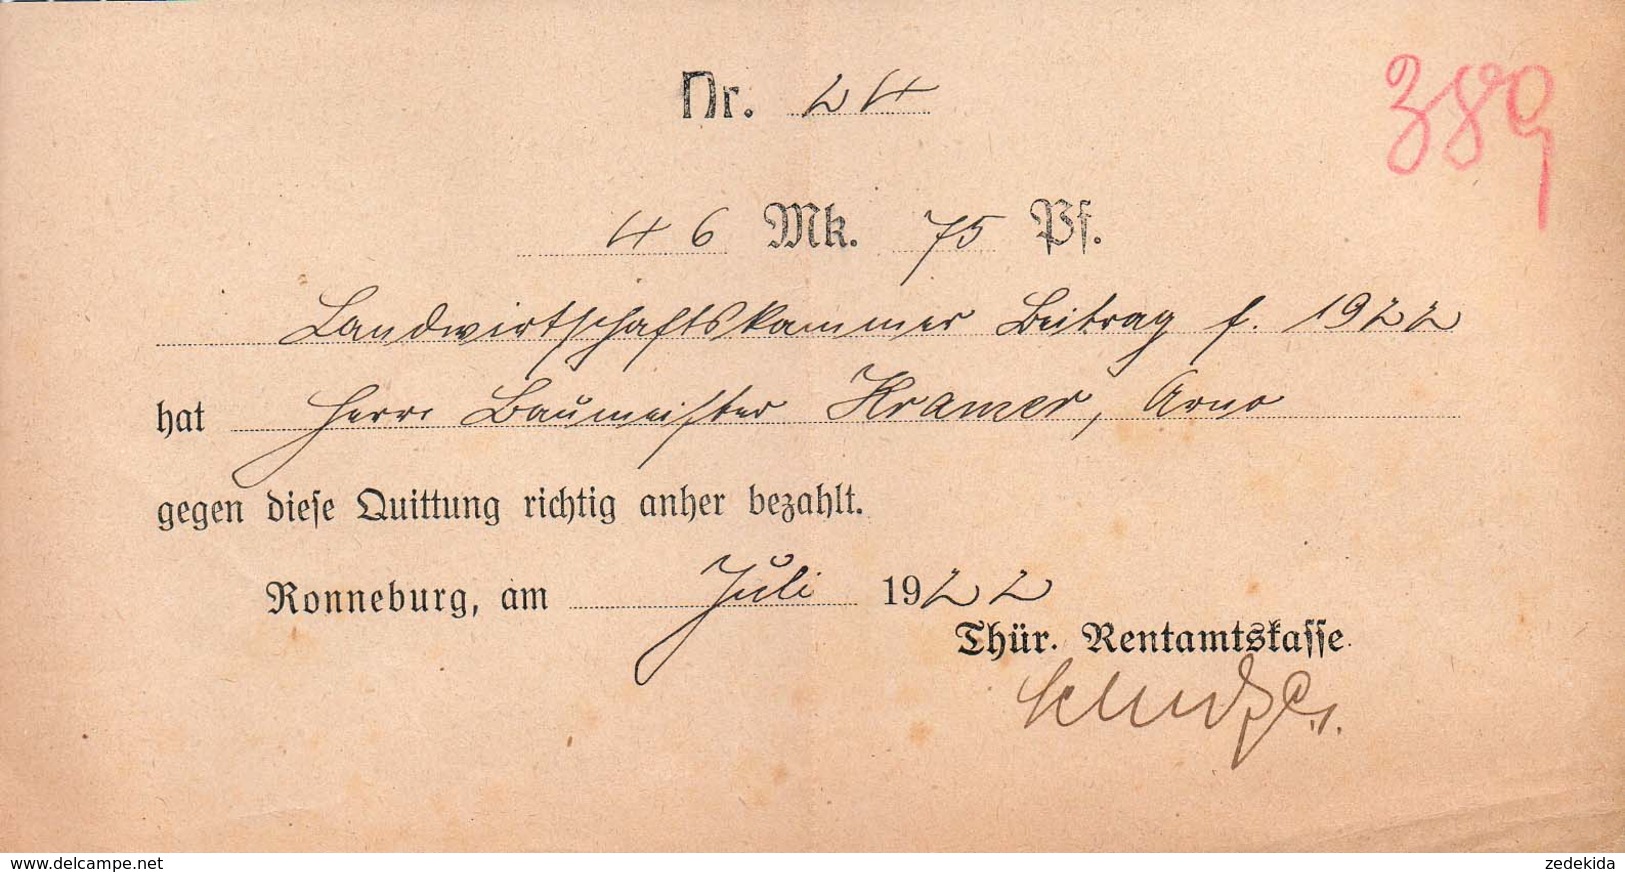 Nr. 24
389
46 Mk. 75 Pf.
Landwirtschaftskammer Beitrag f. 1922
hat Herr Baumeister Kramer, Arno
gegen diese Quittung richtig anher bezahlt.
Ronneburg, am Juli 1922
Thür. Rentamtskasse.
www.delcampe.net
zedekida